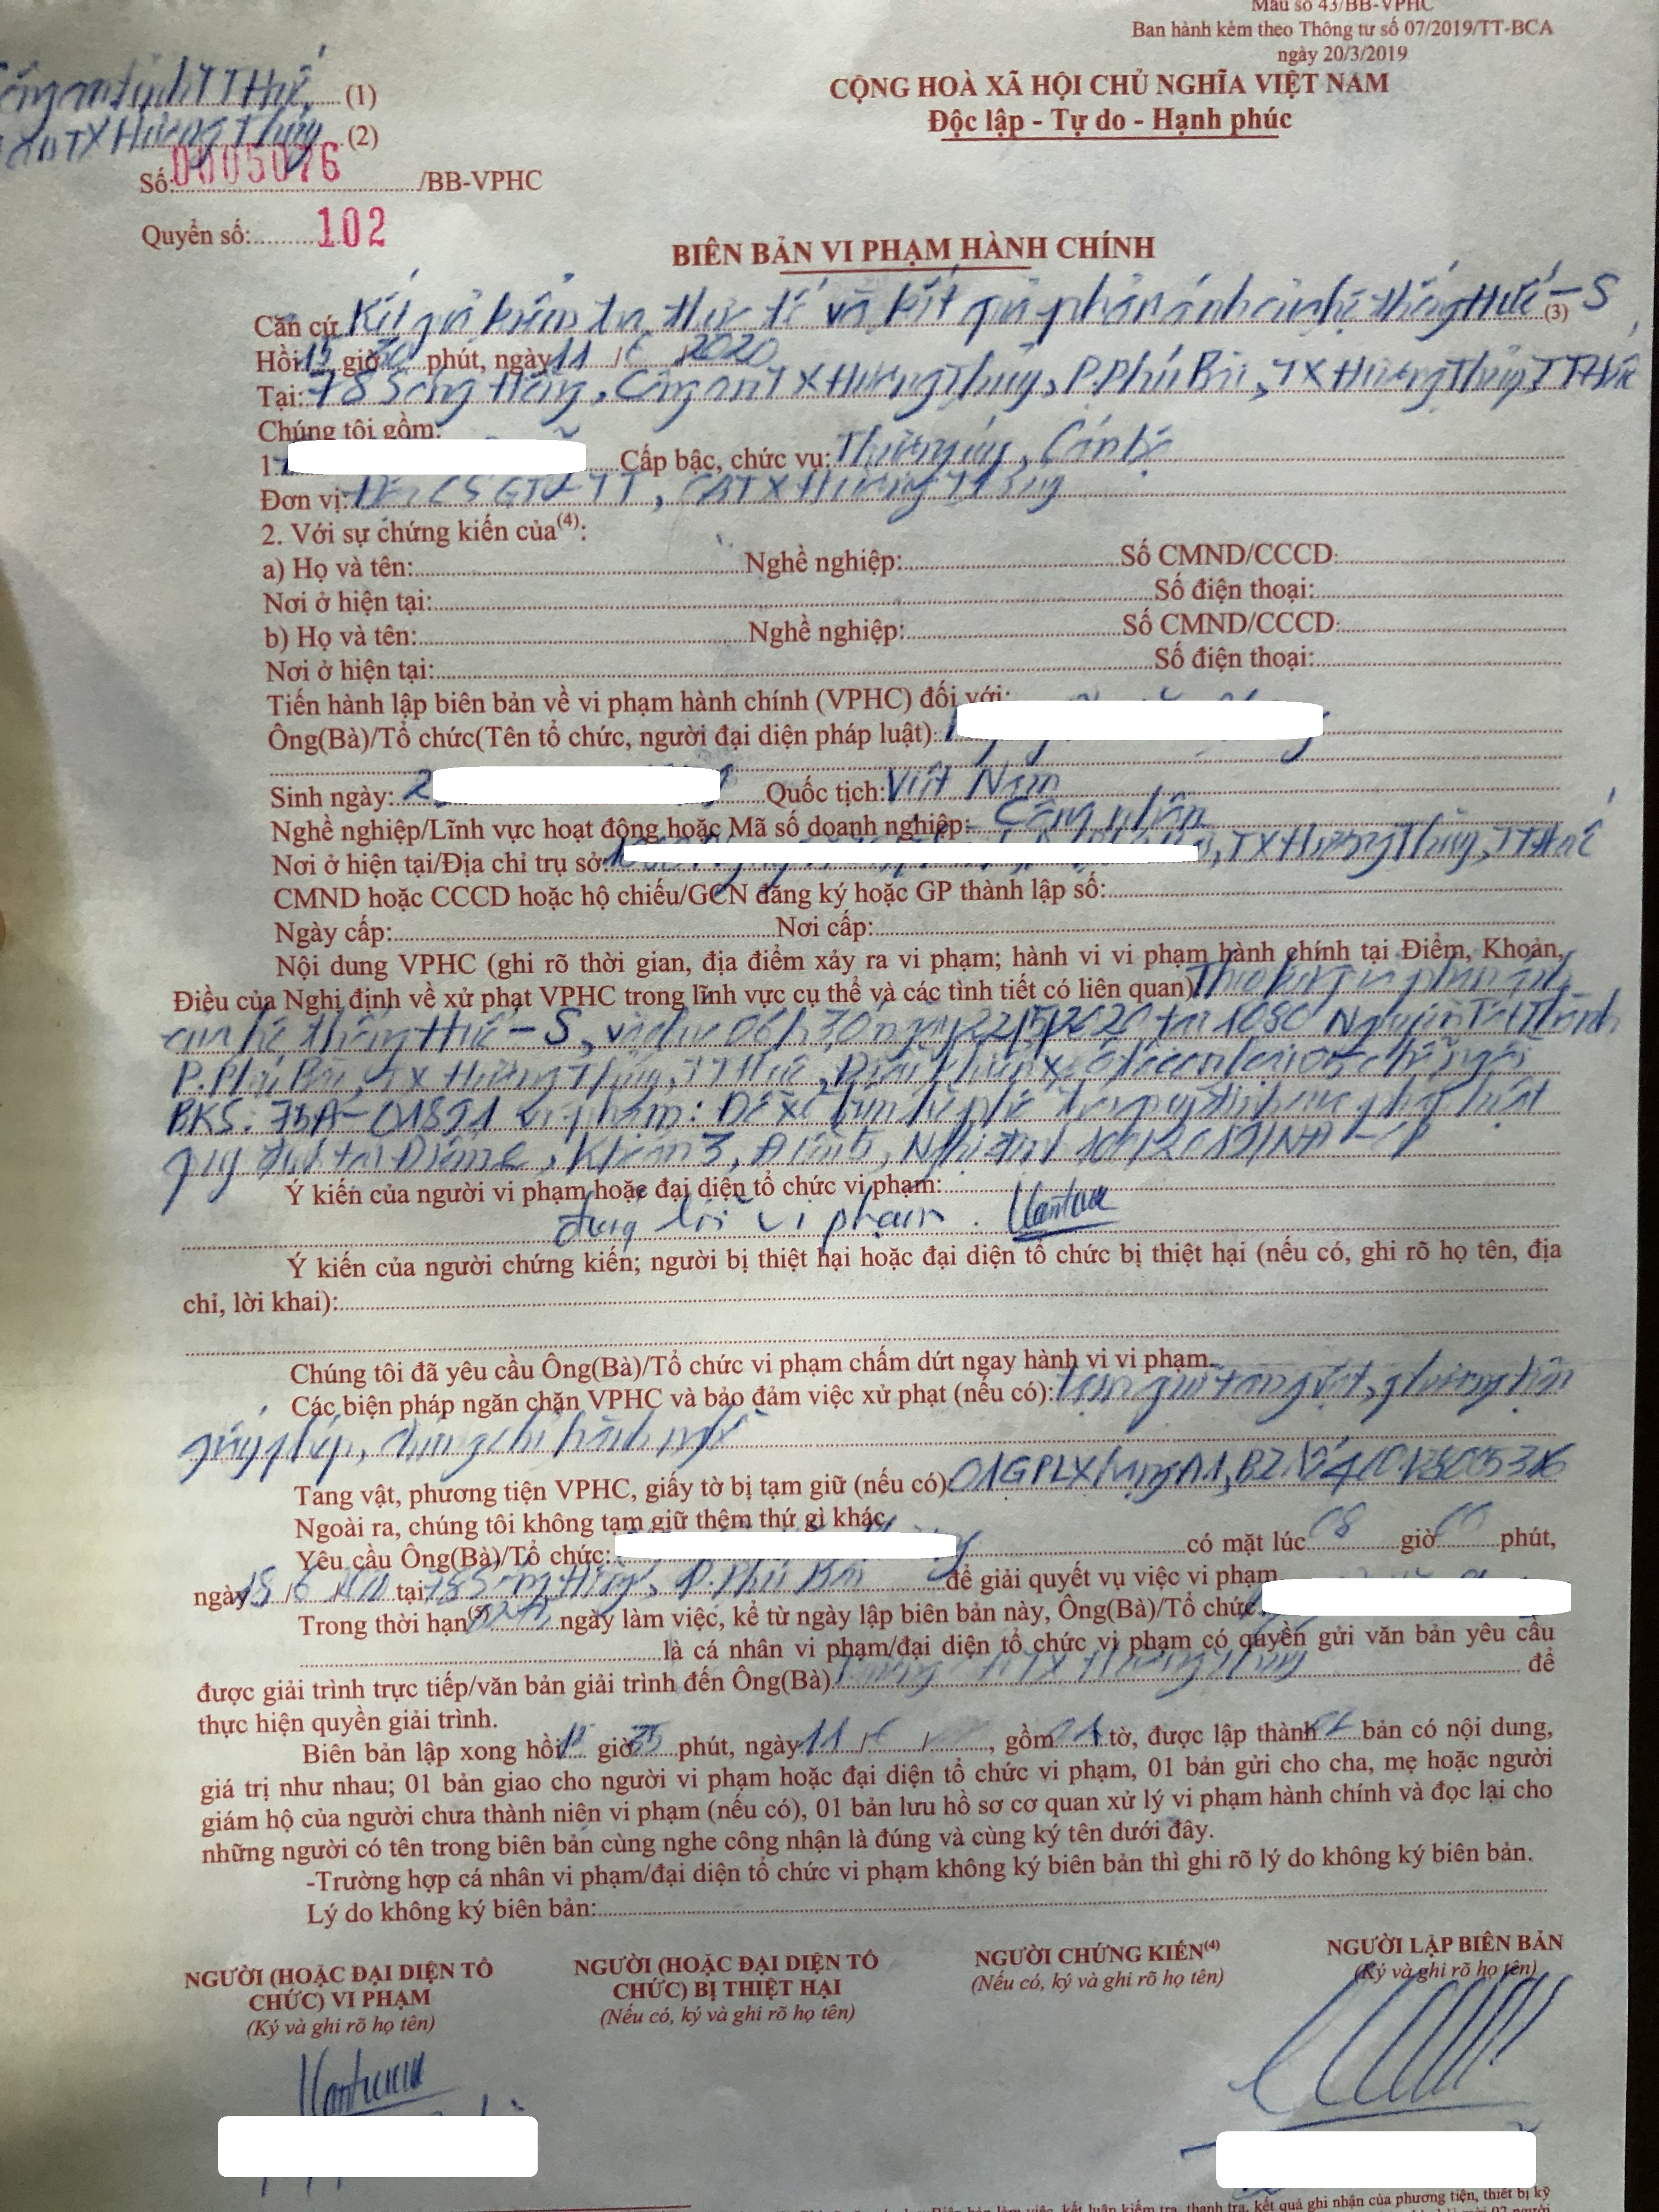 Mẫu số 43/BB-VPHC
Ban hành kèm theo Thông tư số 07/2019/TT-BCA
ngày 20/3/2019
Công an tỉnh TT Huế (1)
CA TX Hương Thủy (2)
CỘNG HOÀ XÃ HỘI CHỦ NGHĨA VIỆT NAM
Độc lập - Tự do - Hạnh phúc
Số: 0005076 /BB-VPHC
Quyển số: 102
BIÊN BẢN VI PHẠM HÀNH CHÍNH
Căn cứ Kết quả kiểm tra thực tế và kết quả phản ánh của hệ thống Huế-S (3)
Hồi 15 giờ 30 phút, ngày 11 / 6 / 2020
Tại: 78 Sóng Hồng, Công an TX Hương Thủy, P.Phú Bài, TX Hương Thủy, TT Huế
Chúng tôi gồm:
1. Cấp bậc, chức vụ: Thượng úy, Cán bộ
Đơn vị: Đội CSGT-TT, CATX Hương Thủy
2. Với sự chứng kiến của(4):
a) Họ và tên: Nghề nghiệp: Số CMND/CCCD:
Nơi ở hiện tại: Số điện thoại:
b) Họ và tên: Nghề nghiệp: Số CMND/CCCD:
Nơi ở hiện tại: Số điện thoại:
Tiến hành lập biên bản về vi phạm hành chính (VPHC) đối với:
Ông(Bà)/Tổ chức(Tên tổ chức, người đại diện pháp luật):
Sinh ngày: 2 Quốc tịch: Việt Nam
Nghề nghiệp/Lĩnh vực hoạt động hoặc Mã số doanh nghiệp: Công nhân
Nơi ở hiện tại/Địa chỉ trụ sở: , TX Hương Thủy, TT Huế
CMND hoặc CCCD hoặc hộ chiếu/GCN đăng ký hoặc GP thành lập số:
Ngày cấp: Nơi cấp:
Nội dung VPHC (ghi rõ thời gian, địa điểm xảy ra vi phạm; hành vi vi phạm hành chính tại Điểm, Khoản,
Điều của Nghị định về xử phạt VPHC trong lĩnh vực cụ thể và các tình tiết có liên quan) Theo phản ánh
của hệ thống Huế-S, vào lúc 06h30 ngày 22/5/2020 tại 1080 Nguyễn Tất Thành
P.Phú Bài, TX Hương Thủy, TT Huế, Điều khiển xe ô tô con 05 chỗ ngồi
BKS: 75A-01891 vi phạm: Để xe ở lòng đường trái quy định của pháp luật
quy định tại Điểm e, Khoản 3, Điều 5, Nghị định 100/2019/NĐ-CP
Ý kiến của người vi phạm hoặc đại diện tổ chức vi phạm:
đúng lỗi vi phạm.
Ý kiến của người chứng kiến; người bị thiệt hại hoặc đại diện tổ chức bị thiệt hại (nếu có, ghi rõ họ tên, địa
chỉ, lời khai):
Chúng tôi đã yêu cầu Ông(Bà)/Tổ chức vi phạm chấm dứt ngay hành vi vi phạm.
Các biện pháp ngăn chặn VPHC và bảo đảm việc xử phạt (nếu có): tạm giữ tang vật, phương tiện
giấy phép, chứng chỉ hành nghề
Tang vật, phương tiện VPHC, giấy tờ bị tạm giữ (nếu có) 01 GPLX hạng A1, B2 số
Ngoài ra, chúng tôi không tạm giữ thêm thứ gì khác.
Yêu cầu Ông(Bà)/Tổ chức: có mặt lúc 08 giờ 00 phút,
ngày tại 78 Sóng Hồng, P.Phú Bài để giải quyết vụ việc vi phạm
Trong thời hạn(5) ngày làm việc, kể từ ngày lập biên bản này, Ông(Bà)/Tổ chức
là cá nhân vi phạm/đại diện tổ chức vi phạm có quyền gửi văn bản yêu cầu
được giải trình trực tiếp/văn bản giải trình đến Ông(Bà) TX Hương Thủy để
thực hiện quyền giải trình.
Biên bản lập xong hồi giờ phút, ngày 11 / 6 / , gồm 01 tờ, được lập thành 02 bản có nội dung,
giá trị như nhau; 01 bản giao cho người vi phạm hoặc đại diện tổ chức vi phạm, 01 bản gửi cho cha, mẹ hoặc người
giám hộ của người chưa thành niên vi phạm (nếu có), 01 bản lưu hồ sơ cơ quan xử lý vi phạm hành chính và đọc lại cho
những người có tên trong biên bản cùng nghe công nhận là đúng và cùng ký tên dưới đây.
-Trường hợp cá nhân vi phạm/đại diện tổ chức vi phạm không ký biên bản thì ghi rõ lý do không ký biên bản.
Lý do không ký biên bản:
NGƯỜI (HOẶC ĐẠI DIỆN TỔ
CHỨC) VI PHẠM
(Ký và ghi rõ họ tên)
NGƯỜI (HOẶC ĐẠI DIỆN TỔ
CHỨC) BỊ THIỆT HẠI
(Nếu có, ký và ghi rõ họ tên)
NGƯỜI CHỨNG KIẾN(4)
(Nếu có, ký và ghi rõ họ tên)
NGƯỜI LẬP BIÊN BẢN
(Ký và ghi rõ họ tên)
kết luận kiểm tra, thanh tra, kết quả ghi nhận của phương tiện, thiết bị kỹ